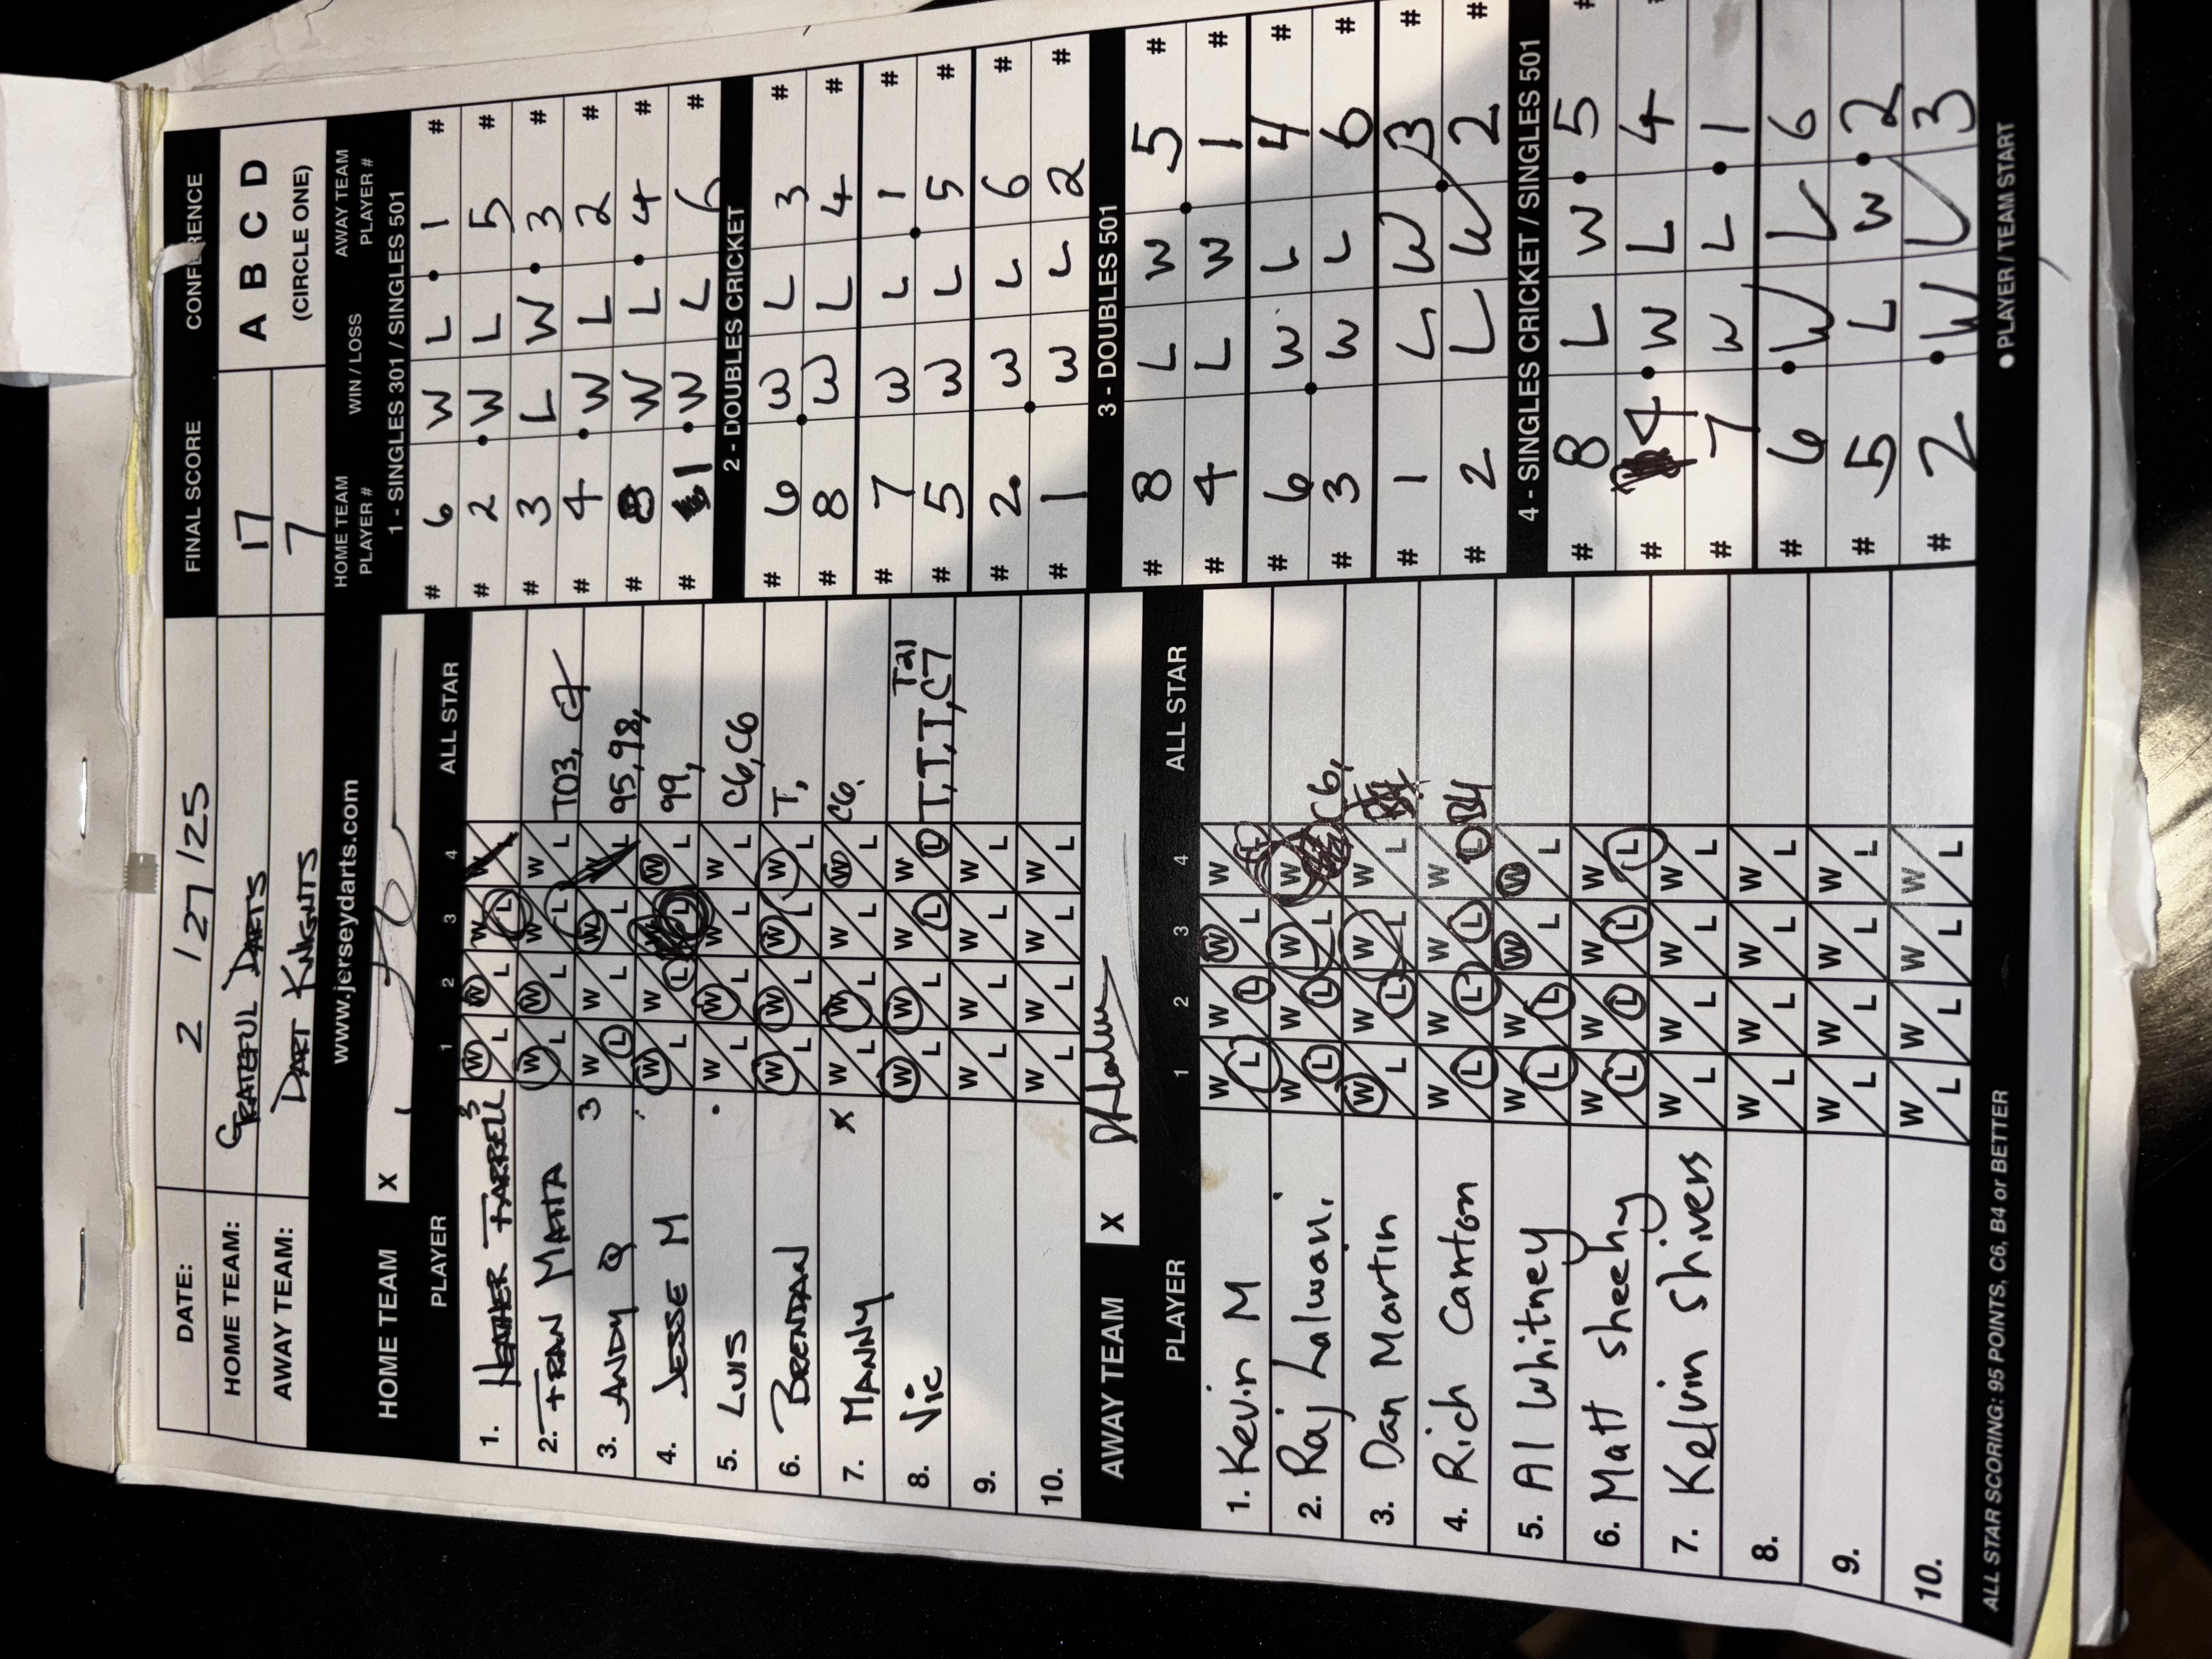 DATE: 2 / 27 / 25 FINAL SCORE CONFERENCE
HOME TEAM: GRATEFUL DARTS 17 A B C D
AWAY TEAM: DART KNIGHTS 7 (CIRCLE ONE)
www.jerseydarts.com
HOME TEAM X
PLAYER 1 2 3 4 ALL STAR
1. HEATHER FARRELL 3 W L W L W L W L
2. FRAN MATTA W L W L W L W L T03,
3. ANDY Q 3 W L W L W L W L 95, 98,
4. JESSE M W L W L W L W L 99,
5. LUIS W L W L W L W L C6, C6
6. BRENDAN W L W L W L W L T,
7. MANNY X W L W L W L W L C6.
8. Vic W L W L W L W L T, T, T, T, C7 T21
9. W L W L W L W L
10. W L W L W L W L
AWAY TEAM X
PLAYER 1 2 3 4 ALL STAR
1. Kevin M W L W L W L W L
2. Raj Lalwani. W L W L W L W L C6,
3. Dan Martin W L W L W L W L
4. Rich Canton W L W L W L W L B4
5. Al Whitney W L W L W L W L
6. Matt Sheehy W L W L W L W L
7. Kelvin Shivers W L W L W L W L
8. W L W L W L W L
9. W L W L W L W L
10. W L W L W L W L
ALL STAR SCORING: 95 POINTS, C6, B4 or BETTER
HOME TEAM PLAYER # WIN / LOSS AWAY TEAM PLAYER #
1 - SINGLES 301 / SINGLES 501
# 6 W L 1 #
# 2 W L 5 #
# 3 L W 3 #
# 4 W L 2 #
# 8 W L 4 #
# 1 W L 6 #
2 - DOUBLES CRICKET
# 6 W L 3 #
# 8 W L 4 #
# 7 W L 1 #
# 5 W L 5 #
# 2 W L 6 #
# 1 W L 2 #
3 - DOUBLES 501
# 8 L W 5 #
# 4 L W 1 #
# 6 W L 4 #
# 3 W L 6 #
# 1 L W 3 #
# 2 L W 2 #
4 - SINGLES CRICKET / SINGLES 501
# 8 L W 5 #
# 4 W L 4 #
# 7 W L 1
# 6 W L 6
# 5 L W 2
# 2 W L 3
● PLAYER / TEAM START